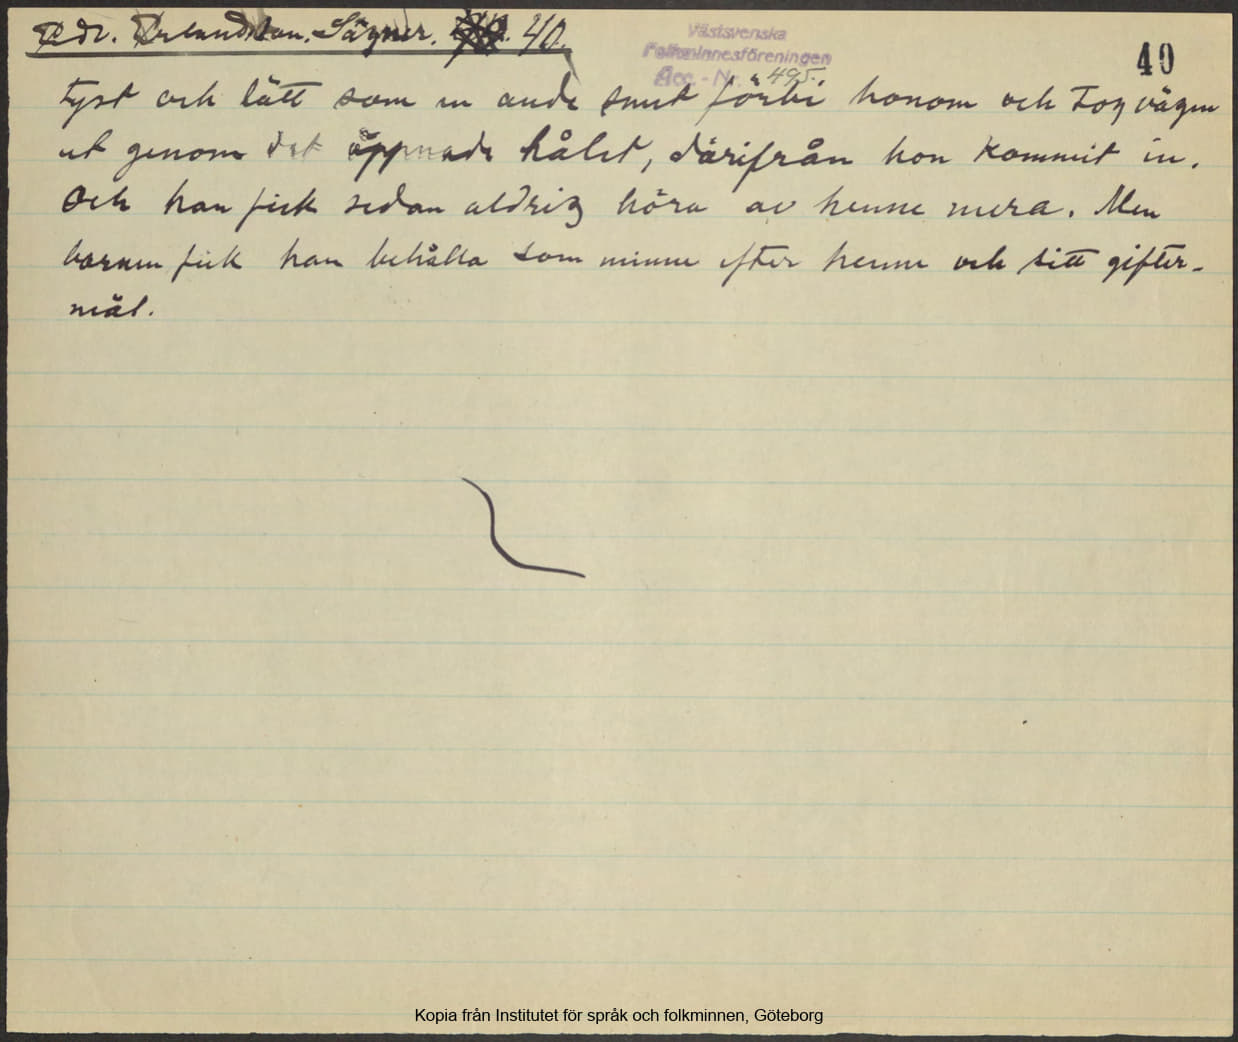 Sägner. 40.
Västsvenska
Folkminnesföreningen
Acc. - Nr. 495.
40
tyst och lätt som en ande smet förbi honom och tog vägen
ut genom det öppnade hålet, därifrån hon kommit in.
Och han fick sedan aldrig höra av henne mera. Men
barnen fick han behålla som minne efter henne och sitt gifter-
mål.
Kopia från Institutet för språk och folkminnen, Göteborg